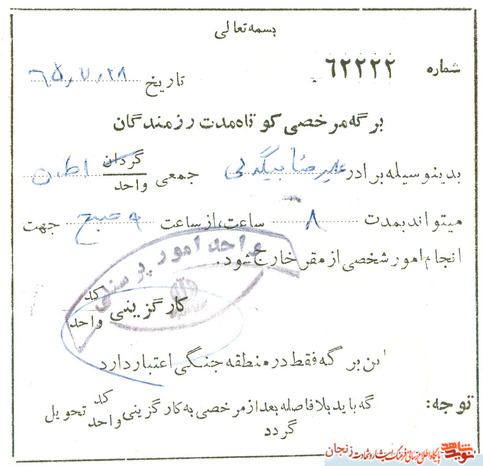 بسمه تعالی
شماره ۶۲۲۲۲
تاریخ ۶۵٫۷٫۲۸
برگه مرخصی کوتاه مدت رزمندگان
بدینوسیله برادر علیرضا بیگدلی جمعی گردان واحد
میتواند بمدت ۸ ساعت، از ساعت ۶ صبح جهت
انجام امور شخصی از مقر خارج شود.
واحد امور پرسنلی
کارگزینی کد واحد
این برگه فقط در منطقه جنگی اعتبار دارد
توجه: که باید بلافاصله بعد از مرخصی به کارگزینی کد واحد تحویل
گردد
نوید شاهد پایگاه اطلاع رسانی فرهنگ ایثار و شهادت زنجان